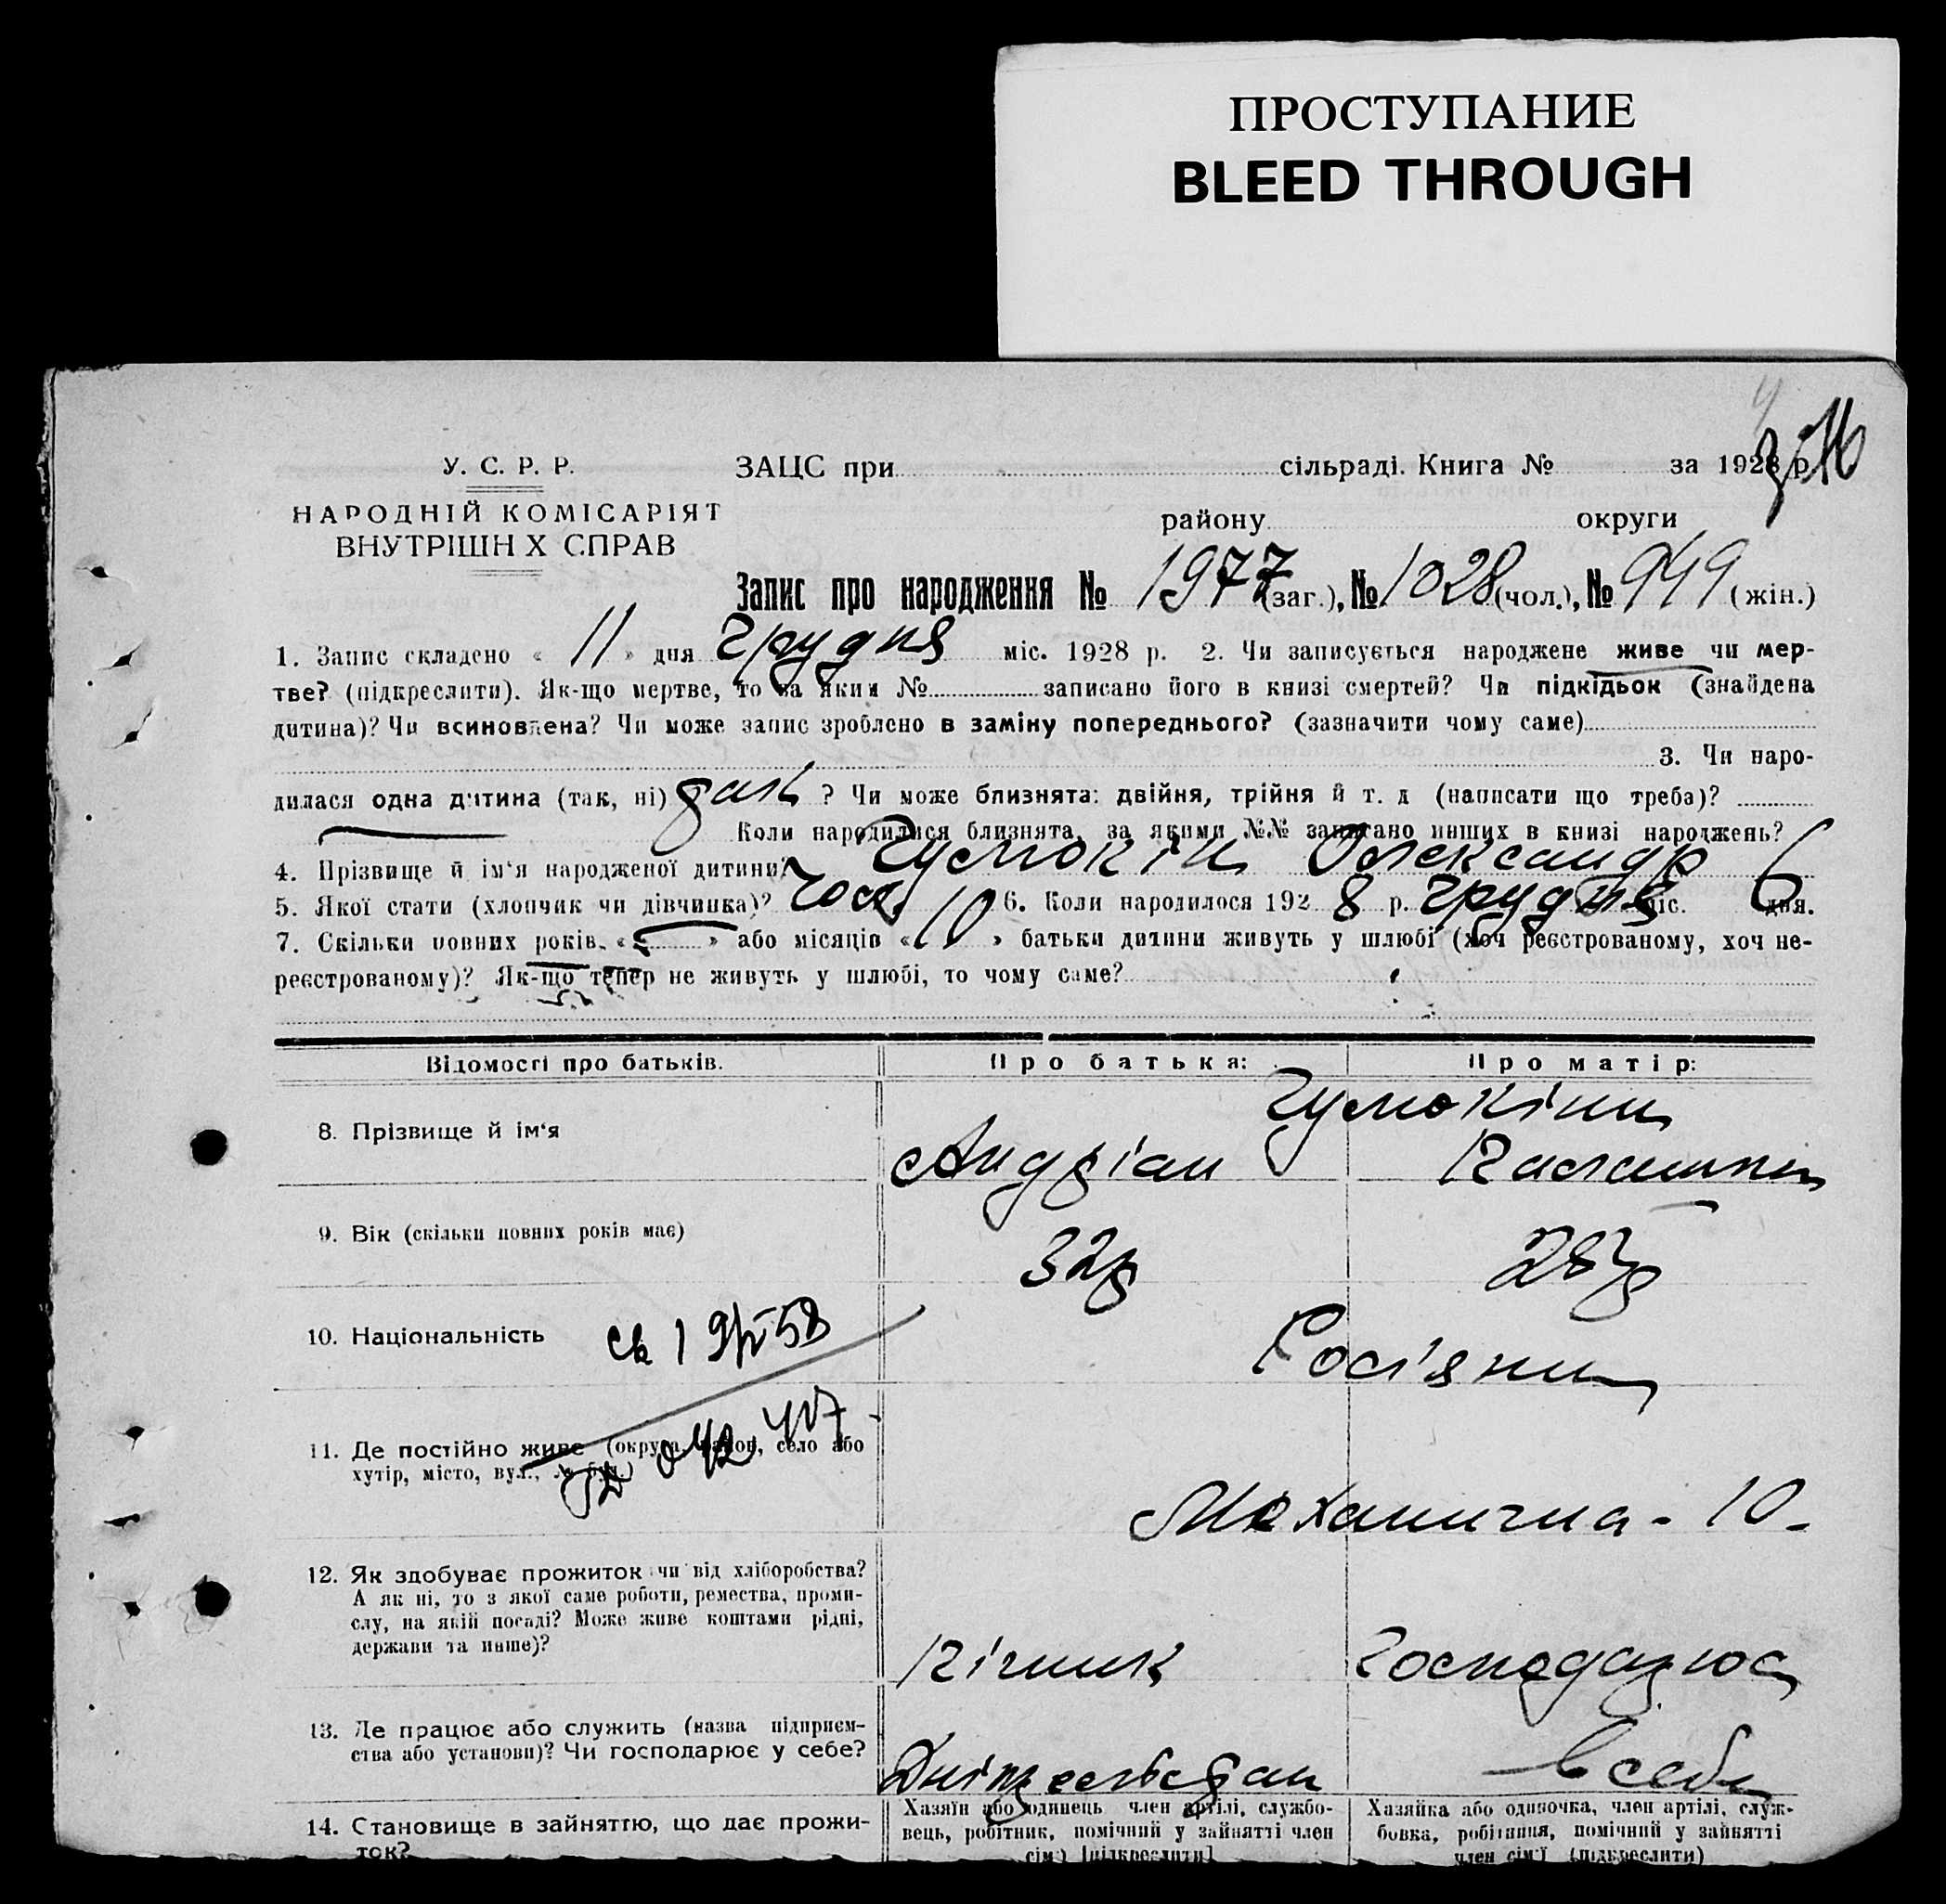 ПРОСТУПАНИЕ
BLEED THROUGH
У. С. Р. Р.
НАРОДНІЙ КОМІСАРІЯТ
ВНУТРІШН Х СПРАВ
ЗАЦС при сільраді. Книга № за 1928 р.
району округи
Запис про народження № 1977 (заг.), № 1028 (чол.), № 949 (жін.)
1. Запис складено « 11 » дня грудня міс. 1928 р. 2. Чи записується народжене живе чи мер-
тве? (підкреслити). Як-що мертве, то за яким № записано його в книзі смертей? Чи підкідьок (знайдена
дитина)? Чи всиновлена? Чи може запис зроблено в заміну попереднього? (зазначити чому саме)
3. Чи наро-
дилася одна дитина (так, ні) так ? Чи може близнята: двійня, трійня й т. д (написати що треба)?
Коли народилися близнята, за якими №№ записано инших в книзі народжень?
4. Прізвище й ім‘я народженої дитини? Олександр
5. Якої стати (хлопчик чи дівчинка)? чол. 6. Коли народилося 192 8 р. грудня міс. 6 дня.
7. Скільки повних років « » або місяців « 10 » батьки дитини живуть у шлюбі (хоч реєстрованому, хоч не-
реєстрованому)? Як-що тепер не живуть у шлюбі, то чому саме?
Відомості про батьків. Про батька: Про матір:
8. Прізвище й ім‘я
Андріан
9. Вік (скільки повних років має) 32р 28р
10. Національність Росіяни
11. Де постійно живе (округа, район, село або
хутір, місто, вул., № буд.)
Механична - 10 -
12. Як здобуває прожиток чи від хліборобства?
А як ні, то з якої саме роботи, ремества, проми-
слу, на якій посаді? Може живе коштами рідні,
держави та инше)?
Пічник Господарює
13. Де працює або служить (назва підприєм-
ства або установи)? Чи господарює у себе?
в себе
14. Становище в зайняттю, що дає прожи-
ток?
Хазяїн або одинець член артілі, службо-
вець, робітник, помічний у зайнятті член
сім‘ї [підкреслити]
Хазяйка або одиночка, член артілі, служ-
бовка, робітниця, помічний у зайнятті
член сім‘ї (підкреслити)